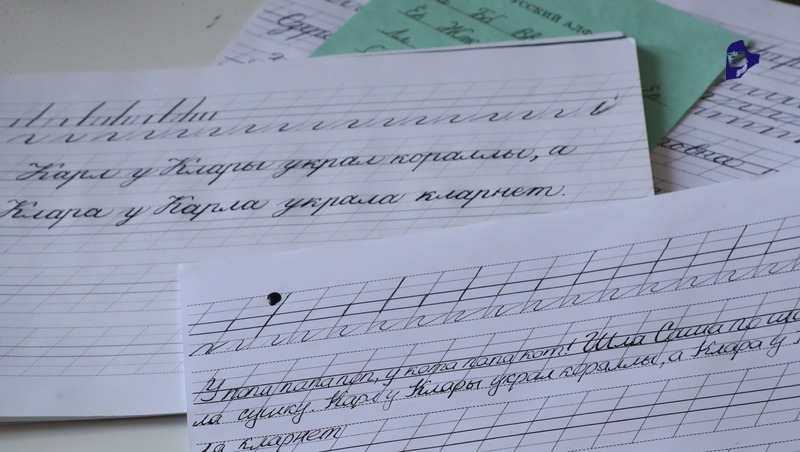 УССКИЙ АЛФ
Бб Вв
Ее Жж
Карл у Клары украл кораллы, а
Клара у Карла украла кларнет.
овна
У попа папа поп, у кота папа кот! Шла Саша по
ла сушку. Карл у Клары украл кораллы, а Клара у
ла кларнет